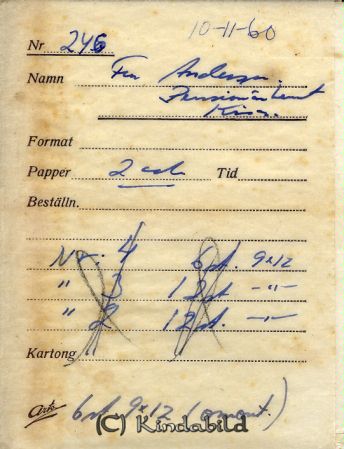 10-11-60
Nr 246
Namn Fru Andersson.
Pensionärshemt
Kisa.
Format
Papper 2 Tid
Beställn.
Nr. 4 6 st. 9x12
" 3 12 st -"-
" 2 12 st. -"-
Kartong
6 st 9x12 (omont.)
(C) Kindabild